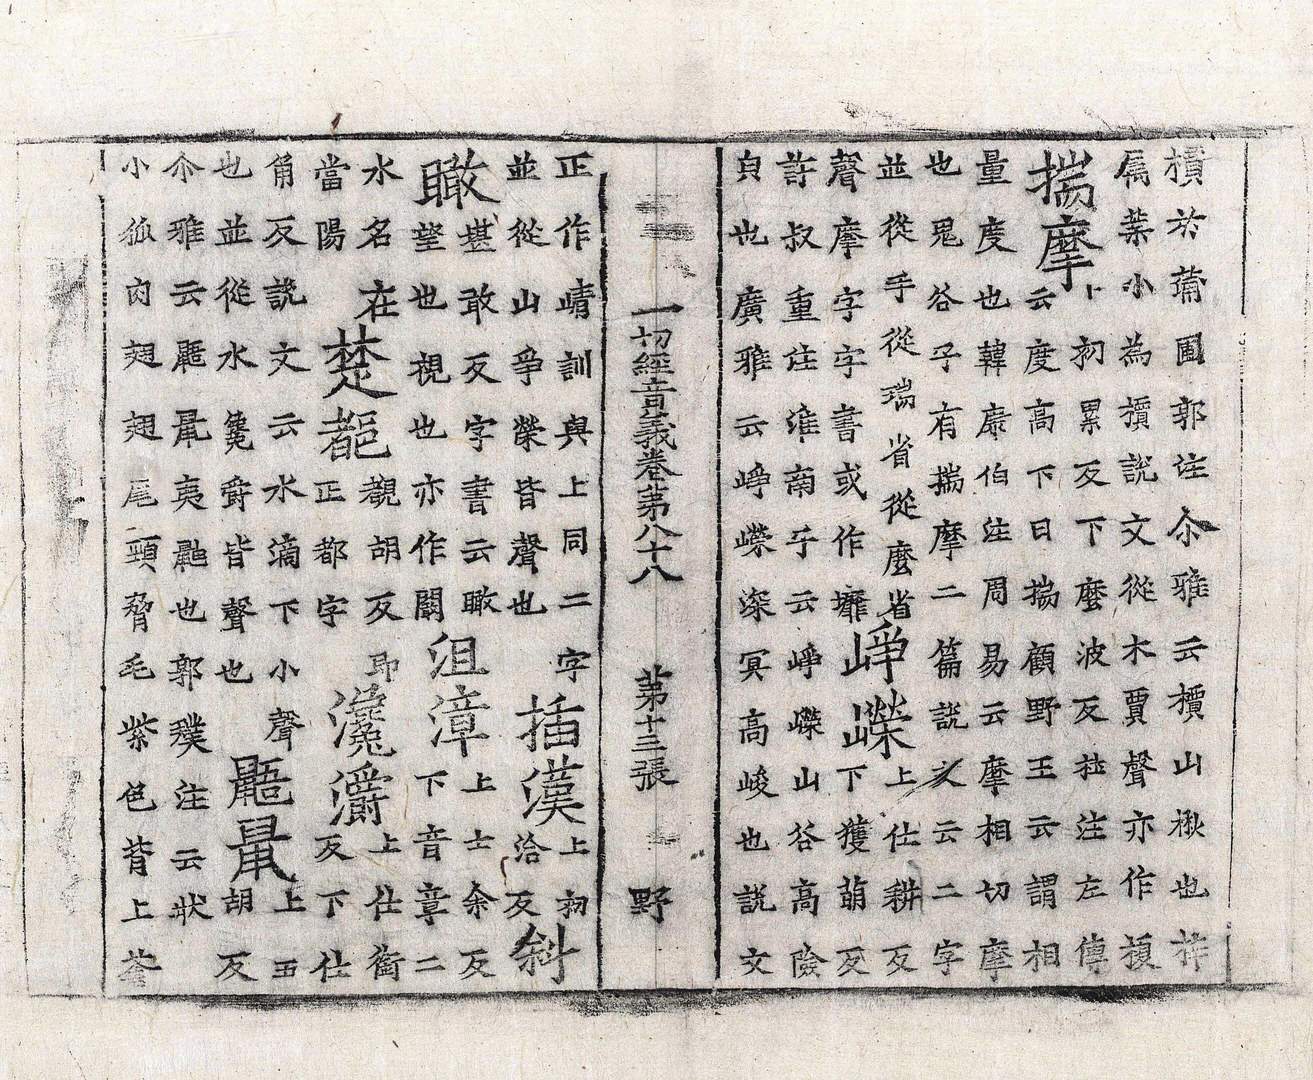 槚於蒲圃郭注尒雅云檟山楸也梓
属葉小為檟說文從木賈聲亦作榎
揣摩上初累反下麼波反竝注左傳
云度高下曰揣顧野王云謂相
量度也韓康伯注周易云摩相切摩
也鬼谷子有揣摩二篇說文云二字
並從手從瑞省從麼省崢嶸上仕耕反
聲摩字字書或作攠下獲萌反
許叔重注淮南子云崢嶸山谷高險
皃也廣雅云崢嶸深冥高峻也說文
一切經音義卷第八十八 第十三張 野
正作崝訓與上同二字插漢上初
並從山爭榮皆聲也洽反斜
瞰堪敢反字書云瞰沮漳上士余反
望也視也亦作闞下音章二
水名在楚都覩胡反瀺灂上仕衜
當陽正都字即反下仕
角反說文云水滴下小聲鼯鼠上五
也並從水毚爵皆聲也胡反
尒雅云鼯鼠夷鼬也郭璞注云狀
小狐肉翅翅尾頸脅毛紫色背上蒼